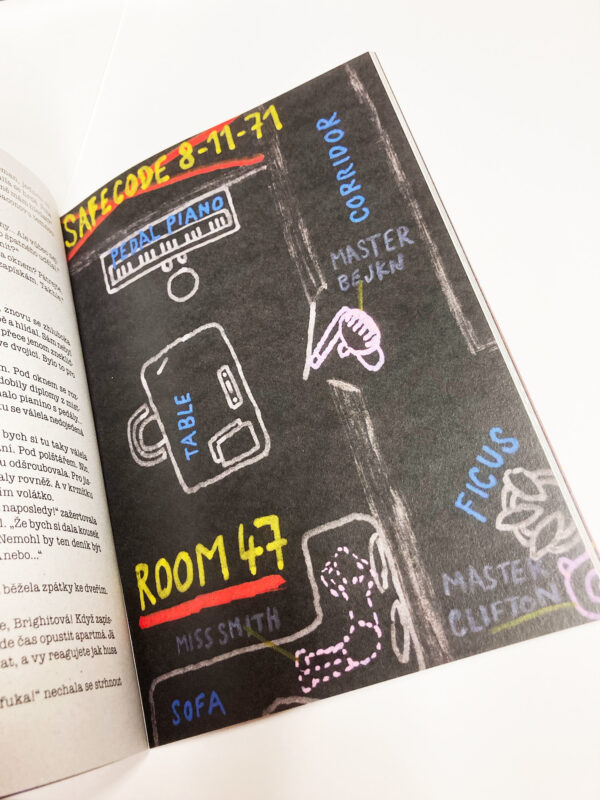 znovu se zhluboka
a hlídal. Sám nebyl
přece jenom zneklid-
ve dvojici. Bylo to pro
m. Pod oknem se roz-
dobily diplomy z míst-
malo pianino s pedály...
ku se válela nedojedená
bych si tu taky válela
tní. Pod polštářem. Nic.
u odšroubovala. Pro jis-
aly rovněž. A v krmítku
ím volátko.
naposledy!“ zažertovala
l. „Že bych si dala kousek
Nemohl by ten deník být
nebo...“
běžela zpátky ke dveřím.
e, Brighitová! Když zapís-
de čas opustit apartmá. Já
at, a vy reagujete jak husa
fuka!“ nechala se strhnout
SAFECODE 8-11-71
PEDAL PIANO
CORRIDOR
MASTER
BEJKN
TABLE
FICUS
ROOM 47
MASTER
CLIFTON
MISS SMITH
SOFA